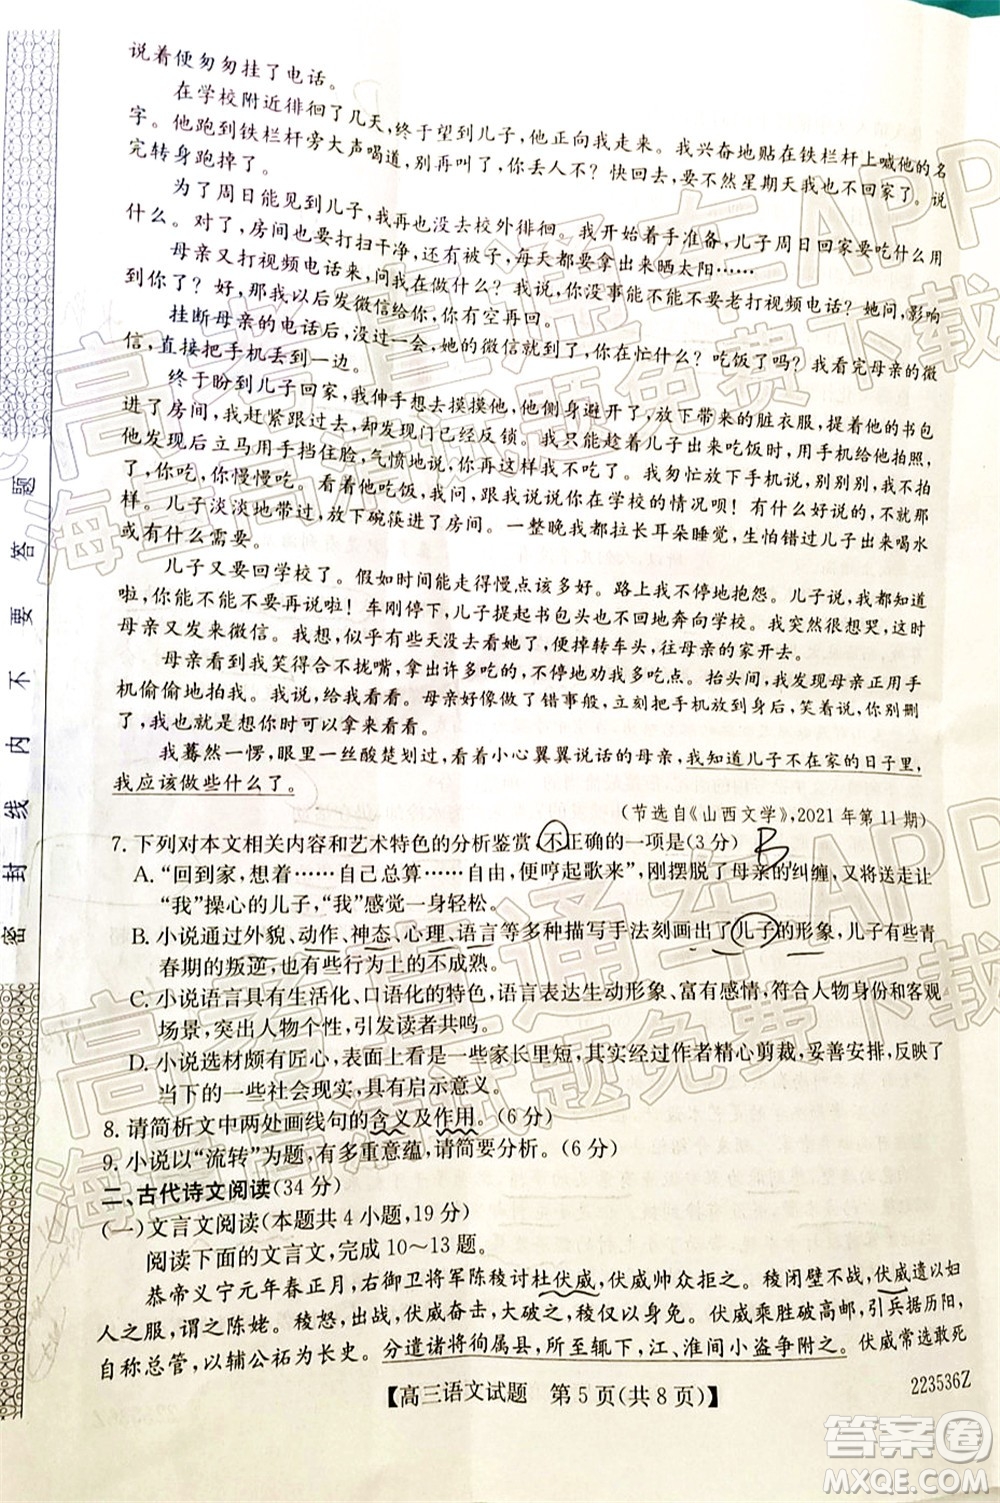 说着便匆匆挂了电话。
在学校附近徘徊了几天,终于望到儿子,他正向我走来。我兴奋地贴在铁栏杆上喊他的名
字。他跑到铁栏杆旁大声喝道,别再叫了,你丢人不?快回去,要不然星期天我也不回家了。说
完转身跑掉了。
为了周日能见到儿子,我再也没去校外徘徊。我开始着手准备,儿子周日回家要吃什么用
什么。对了,房间也要打扫干净,每天都要拿出来晒太阳……
母亲又打视频电话了,问我在做什么?我说,你能不能不要老打视频电话?她问,影响
你了?好,那以后发微信给你,你有空再回。
挂断母亲的电话后,没过一会,她的微信就来了。你在忙什么?吃饭了吗?我看完母亲的微
信,直接把手机丢到一边。
终于盼到儿子回家,我伸手想去摸摸他,他侧身避开了,放下带来的脏衣服,提着背包
进了房间,我赶紧跟过去,却发现门已经反锁。
没过
儿子立马用手挡住脸,气愤地说,再这样我不吃了。我匆忙切断视频,说,别别别,我不拍
了,你吃,你慢慢吃。看着他吃饭,我问,跟妈说说你在学校的情况呗!有什么好说的,不就那
样。儿子淡淡地带过,放下碗筷进了房间。一整晚我都拉长耳朵睡觉,生怕错过儿子出来喝水
或有什么需要。
儿子又要回学校了。假如时间能走得慢点该多好。路上我不停地抱怨。儿子说,知道
啦,你能不能不要再说啦!车刚停下,儿子提起书包头也不回地奔向学校。我突然很想哭,这时
母亲又发来微信。我想,似乎有些天没去看她了,便掉转车头,往母亲的家开去。
母亲看到我笑得合不拢嘴,拿出许多吃的,不停地劝我多吃点。抬头间,母亲正用手
机偷偷地拍我。我说,给我看看。母亲好像做了错事般,立刻把手机放到身后,说,你别删
了,我想你时可以拿来看看。
我蓦然一愣,眼里一丝酸楚划过,看着小心翼翼说话的母亲,我知道儿子不在家的日子里,
我应该做些什么了。
(节选自《山西文学》,2021年第11期)
7. 下列对本文相关内容和艺术特色的分析鉴赏,不正确的一项是(3分) B
A. “回到家,看到……自己总算……自由,便哼起歌来”,刚摆脱了母亲的纠缠,又将送走让
“我”操心的儿子,“我”感觉一身轻松。
B. 小说通过外貌、动作、神态、心理、语言等多种描写手法刻画出了儿子的形象,儿子有青
春期的叛逆,也有行为上的不成熟。
C. 小说语言具有生活化、口语化的特色,语言表达生动形象、富有感情,符合人物身份和客观
场景,突出人物个性,引发读者共鸣。
D. 小说选材颇有匠心,看似是一些家长里短,其实经过作者精心剪裁,妥善安排,反映了
当下的一些社会现实,具有启示意义。
8. 请简析文中两处画线句的含义及作用。(6分)
9. 小说以“流转”为题,有多重意蕴,请简要分析。(6分)
二、古代诗文阅读(34分)
(一)文言文阅读(本题共4小题,19分)
阅读下面的文言文,完成10~13题。
恭帝义宁元年春正月,右御卫将军陈稜讨杜伏威,伏威帅众拒之。稜闭壁不战,伏威遗以妇
人之服,谓之陈姥。稜怒,出战,伏威奋击,大破之,稜仅以身免。伏威乘胜破高邮,引兵据历阳,
自称总管,以辅公祏为长史。分遣诸将徇属县,所至辄下,江、淮间小盗争附之。伏威常选敢死
【高三语文试题 第5页(共8页)】
223536Z
密 封 线 内 不 要 答 题
高考直通车APP
海量高清试题免费下载
高考直通车APP
海量高清试题免费下载
答案圈
MXQE.COM